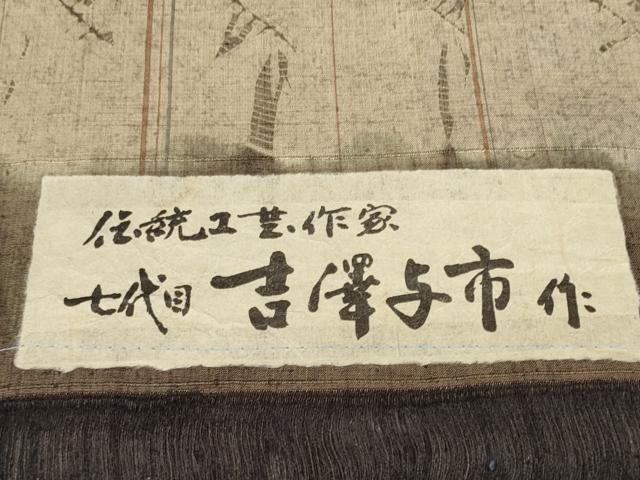 伝統工芸作家
七代目 吉澤与市 作